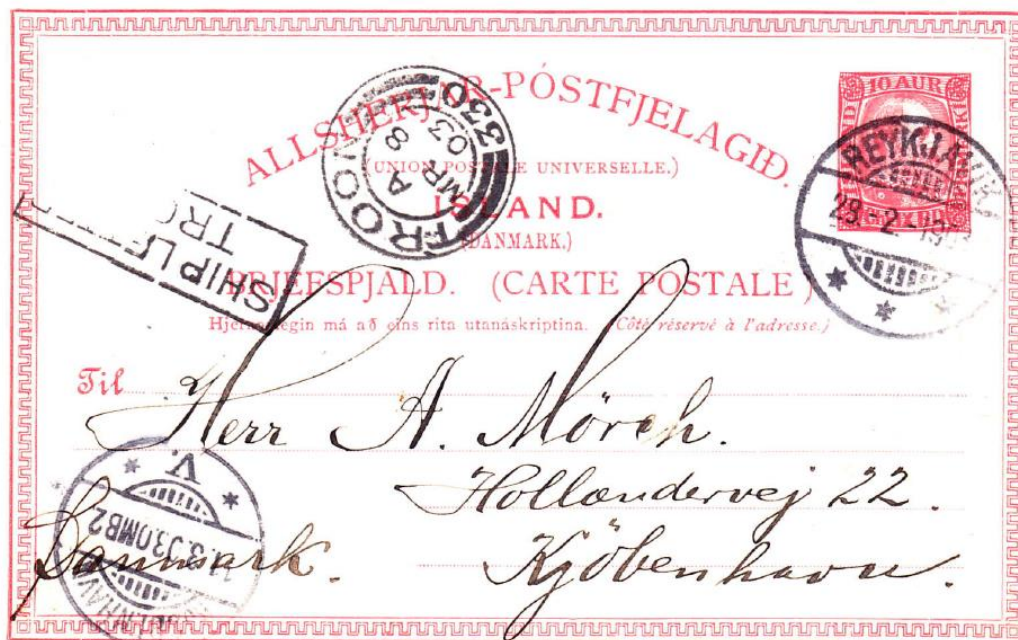 ALLSHERJAR-PÓSTFJELAGIÐ.
(UNION POSTALE UNIVERSELLE.)
ÍSLAND.
(DANMARK.)
BRJEFSPJALD. (CARTE POSTALE)
Hjernamegin má að eins rita utanáskriptina. (Côté réservé à l'adresse.)
10 AUR
REYKJAVIK
TROON
330
A
MR 8
03
SHIP LE
TRO
Til Herr A. Mörch.
Hollændervej 22.
Danmark. Kjöbenhavn.
V.
3.03.OMB2